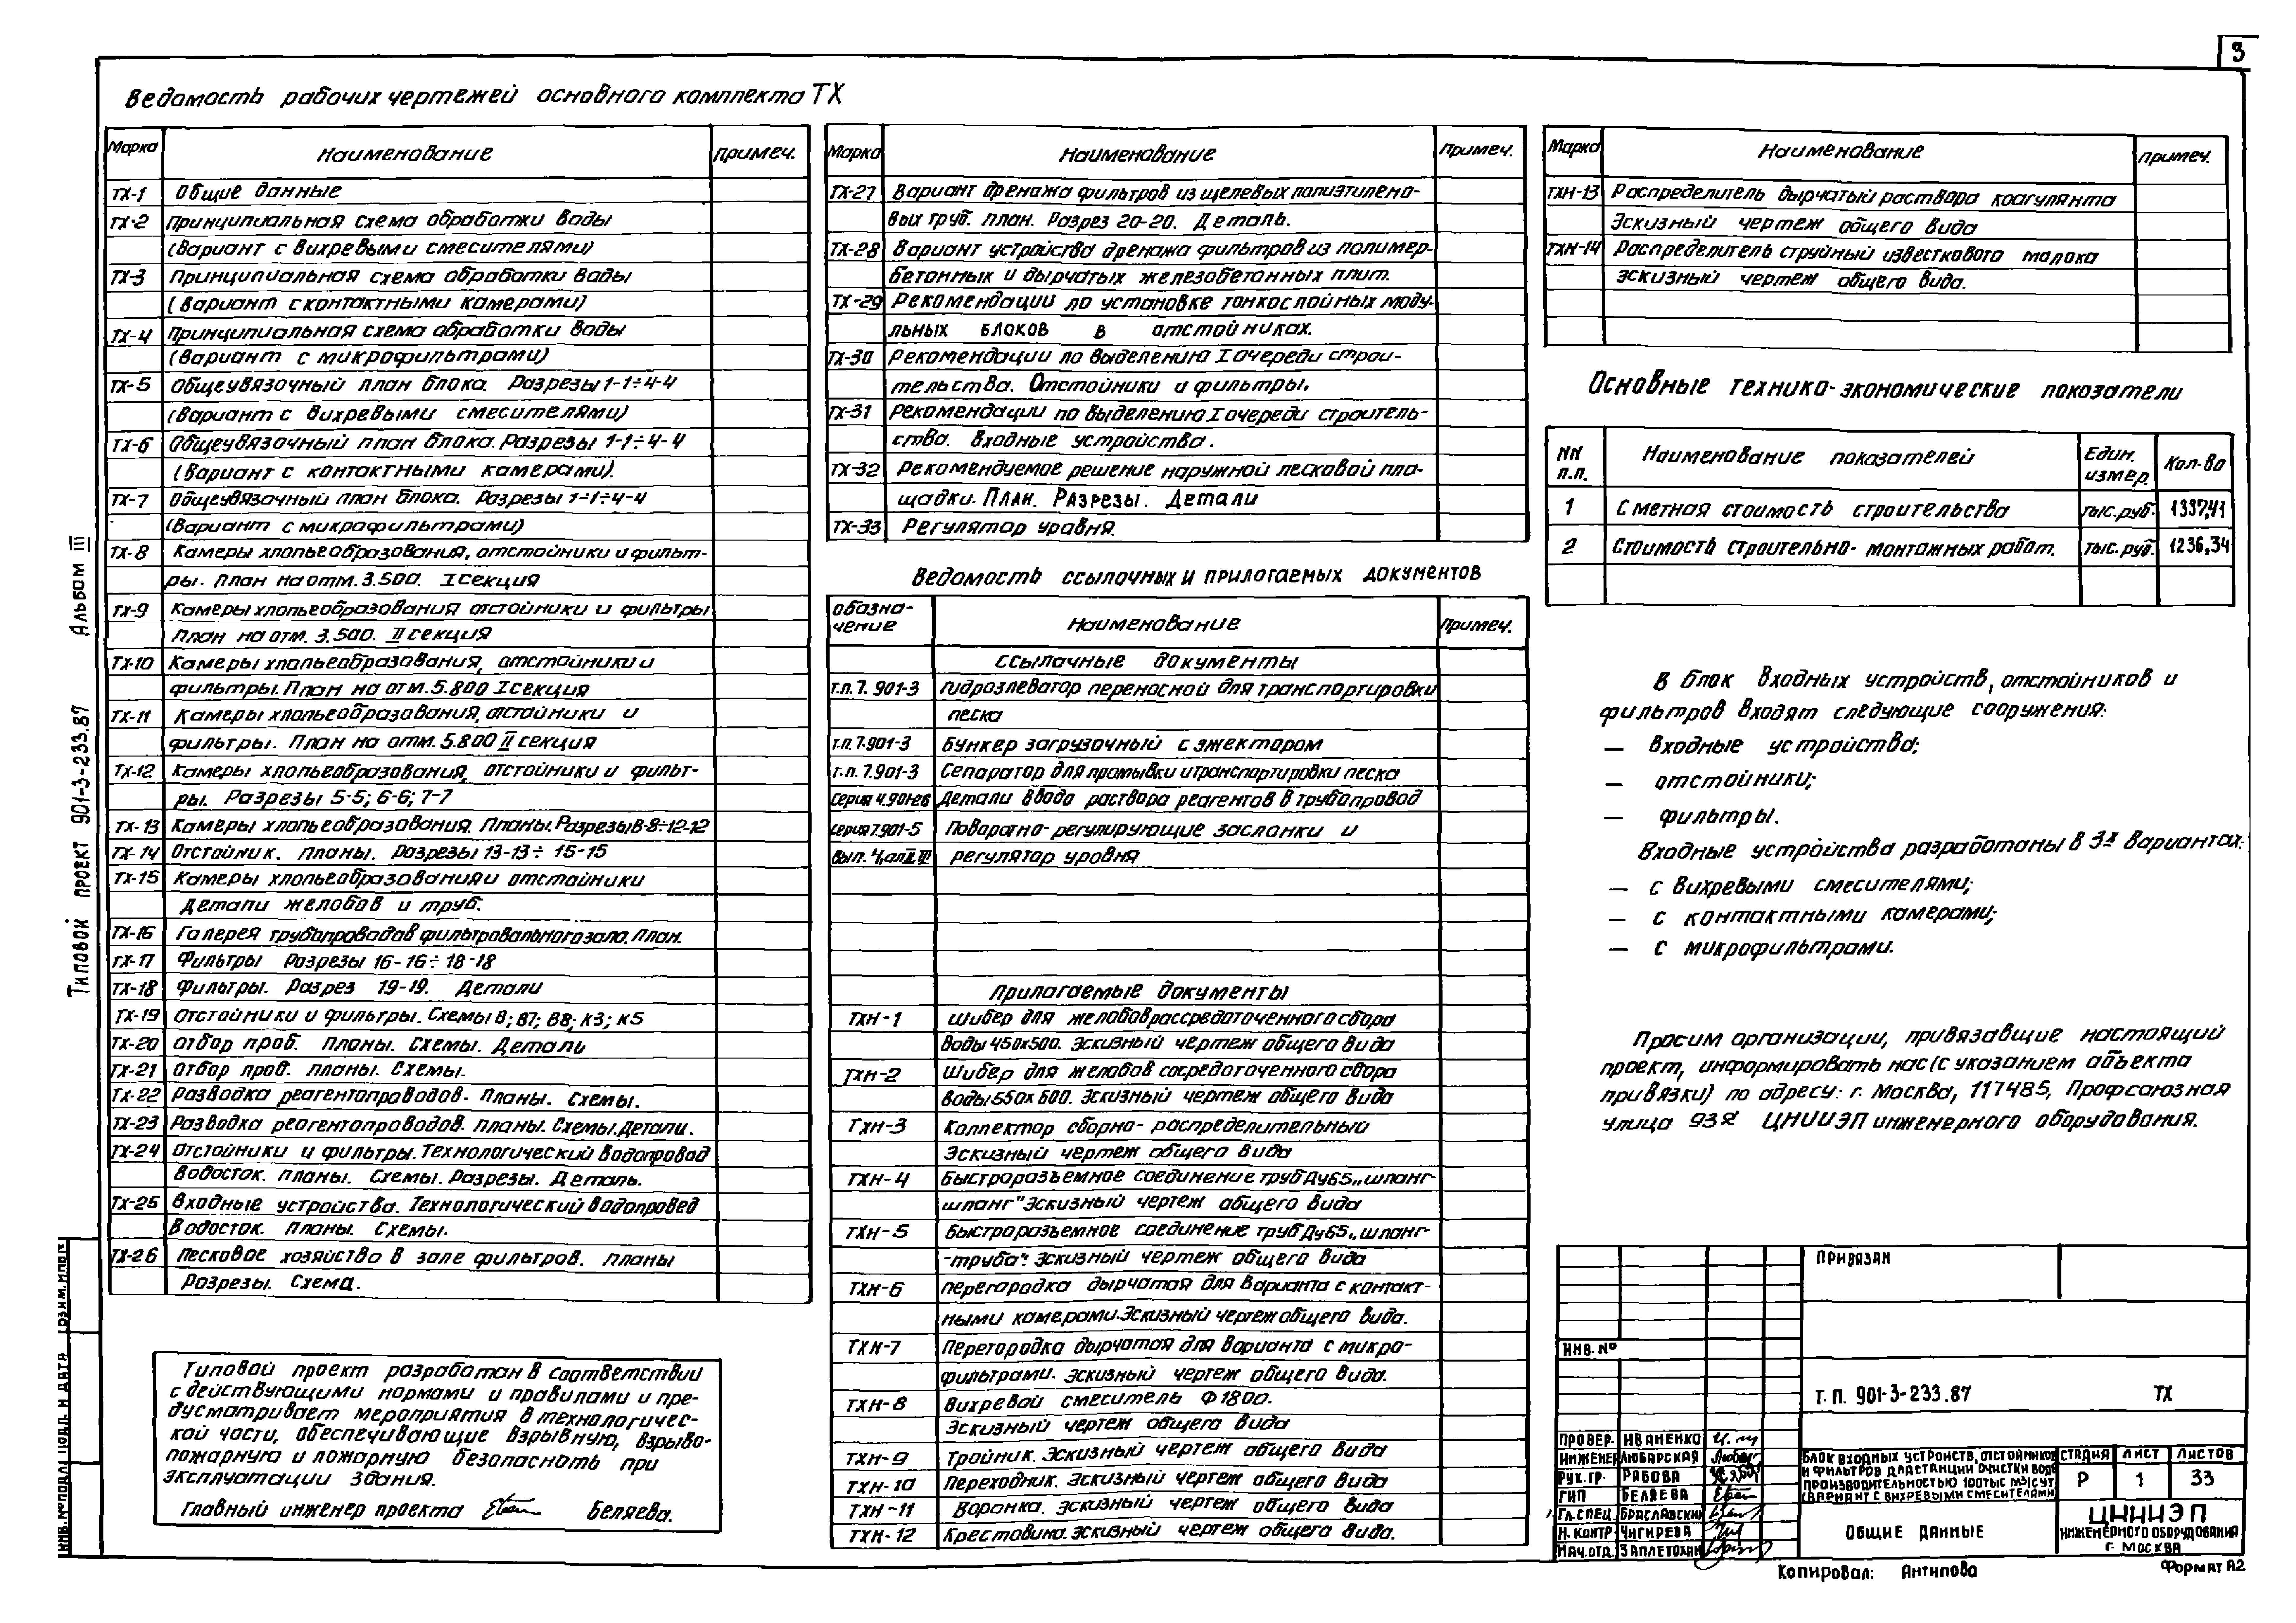 3
Ведомость рабочих чертежей основного комплекта ТХ
Марка Наименование Примеч.
ТХ-1 Общие данные
ТХ-2 Принципиальная схема обработки воды
(вариант с вихревыми смесителями)
ТХ-3 Принципиальная схема обработки воды
(вариант с контактными камерами)
ТХ-4 Принципиальная схема обработки воды
(вариант с микрофильтрами)
ТХ-5 Общеувязочный план блока. Разрезы 1-1÷4-4
(вариант с вихревыми смесителями)
ТХ-6 Общеувязочный план блока. Разрезы 1-1÷4-4
(вариант с контактными камерами).
ТХ-7 Общеувязочный план блока. Разрезы 1-1÷4-4
(вариант с микрофильтрами)
ТХ-8 Камеры хлопьеобразования, отстойники и фильт-
ры. План на отм. 3.500. I секция
ТХ-9 Камеры хлопьеобразования отстойники и фильтры
План на отм. 3.500. II секция
ТХ-10 Камеры хлопьеобразования, отстойники и
фильтры. План на отм. 5.800 I секция
ТХ-11 Камеры хлопьеобразования, отстойники и
фильтры. План на отм. 5.800 II секция
ТХ-12 Камеры хлопьеобразования, отстойники и фильт-
ры. Разрезы 5-5; 6-6; 7-7
ТХ-13 Камеры хлопьеобразования. Планы. Разрезы 8-8÷12-12
ТХ-14 Отстойник. Планы. Разрезы 13-13÷ 15-15
ТХ-15 Камеры хлопьеобразования и отстойники
Детали желобов и труб.
ТХ-16 Галерея трубопроводов фильтровального зала. План.
ТХ-17 Фильтры Разрезы 16-16÷ 18-18
ТХ-18 Фильтры. Разрез 19-19. Детали
ТХ-19 Отстойники и фильтры. Схемы В; В7; В8; К3; К5
ТХ-20 Отбор проб. Планы. Схемы. Деталь
ТХ-21 Отбор проб. Планы. Схемы.
ТХ-22 Разводка реагентопроводов. Планы. Схемы.
ТХ-23 Разводка реагентопроводов. Планы. Схемы. Детали.
ТХ-24 Отстойники и фильтры. Технологический водопровод
Водосток. Планы. Схемы. Разрезы. Деталь.
ТХ-25 Входные устройства. Технологический водопровед
Водосток. Планы. Схемы.
ТХ-26 Песковое хозяйство в зале фильтров. Планы
Разрезы. Схема.
Типовой проект разработан в соответствии
с действующими нормами и правилами и пре-
дусматривает мероприятия в технологичес-
кой части, обеспечивающие взрывную, взрыво-
пожарную и пожарную безопасность при
эксплуатации здания.
Главный инженер проекта Беляева.
Марка Наименование Примеч.
ТХ-27 Вариант дренажа фильтров из щелевых полиэтилено-
вых труб. План. Разрез 20-20. Деталь.
ТХ-28 Вариант устройства дренажа фильтров из полимер-
бетонных и дырчатых железобетонных плит.
ТХ-29 Рекомендации по установке тонкослойных моду-
льных блоков в отстойниках.
ТХ-30 Рекомендации по выделению I очереди строи-
тельства. Отстойники и фильтры.
ТХ-31 Рекомендации по выделению I очереди строитель-
ства. Входные устройства.
ТХ-32 Рекомендуемое решение наружной песковой пло-
щадки. План. Разрезы. Детали
ТХ-33 Регулятор уравня.
Ведомость ссылочных и прилагаемых документов
обозна-
чение Наименование Примеч.
Ссылочные документы
т.п. 7. 901-3 Гидроэлеватор переносной для транспортировки
песка
т.п. 7.901-3 Бункер загрузочный с эжектором
т.п. 7.901-3 Сепаратор для промывки и транспортировки песка
Серия 4.901-26 Детали ввода раствора реагентов в трубопровод
Серия 7.901-5 Поворотно-регулирующие заслонки и
регулятор уровня
Прилагаемые документы
ТХН-1 Шибер для желобов рассредоточенного сбора
воды 450х500. Эскизный чертеж общего вида
ТХН-2 Шибер для желобов сосредоточенного сбора
воды 550х600. Эскизный чертеж общего вида
ТХН-3 Коллектор сборно-распределительный
Эскизный чертеж общего вида
ТХН-4 Быстроразъемное соединение труб Ду65„шланг-
шланг" Эскизный чертеж общего вида
ТХН-5 Быстроразъемное соединение труб Ду65„шланг-
-труба". Эскизный чертеж общего вида
ТХН-6 Перегородка дырчатая для варианта с контакт-
ными камерами. Эскизный чертеж общего вида.
ТХН-7 Перегородка дырчатая для варианта с микро-
фильтрами. Эскизный чертеж общего вида.
ТХН-8 Вихревой смеситель Ф1800.
Эскизный чертеж общего вида
ТХН-9 Тройник. Эскизный чертеж общего вида
ТХН-10 Переходник. Эскизный чертеж общего вида
ТХН-11 Воронка. Эскизный чертеж общего вида
ТХН-12 Крестовина. Эскизный чертеж общего вида.
Марка Наименование Примеч.
ТХН-13 Распределитель дырчатый раствора коагулянта
Эскизный чертеж общего вида
ТХН-14 Распределитель струйный известкового молока
Эскизный чертеж общего вида.
Основные технико-экономические показатели
NN
п.п. Наименование показателей Един.
измер. Кол-во
1 Сметная стоимость строительства тыс.руб. 1337,41
2 Стоимость строительно-монтажных работ. тыс.руб. 1236,34
В блок входных устройств, отстойников и
фильтров входят следующие сооружения:
— входные устройства;
— отстойники;
— фильтры.
Входные устройства разработаны в 3х вариантах:
— с вихревыми смесителями;
— с контактными камерами;
— с микрофильтрами.
Просим организации, привязавшие настоящий
проект, информировать нас (с указанием объекта
привязки) по адресу: г. Москва, 117485, Профсоюзная
улица 93а ЦНИИЭП инженерного оборудования.
Привязан
Инв. №
Т.П. 901-3-233.87 ТХ
Провер. Иваненко
Инженер Любарская
Рук.гр. Рябова
ГИП Беляева
Гл.спец. Браславский
Н.контр. Чигирева
Нач.отд. Заплетохин
Блок входных устройств, отстойников
и фильтров для станции очистки воды
производительностью 100 тыс м3/сут
(вариант с вихревыми смесителями)
Стадия Лист Листов
Р 1 33
Общие данные
ЦНИИЭП
инженерного оборудования
г. Москва
Копировал: Антипова
Формат А2
Типовой проект 901-3-233.87 Альбом III
Инв. № подл. Подп. и дата